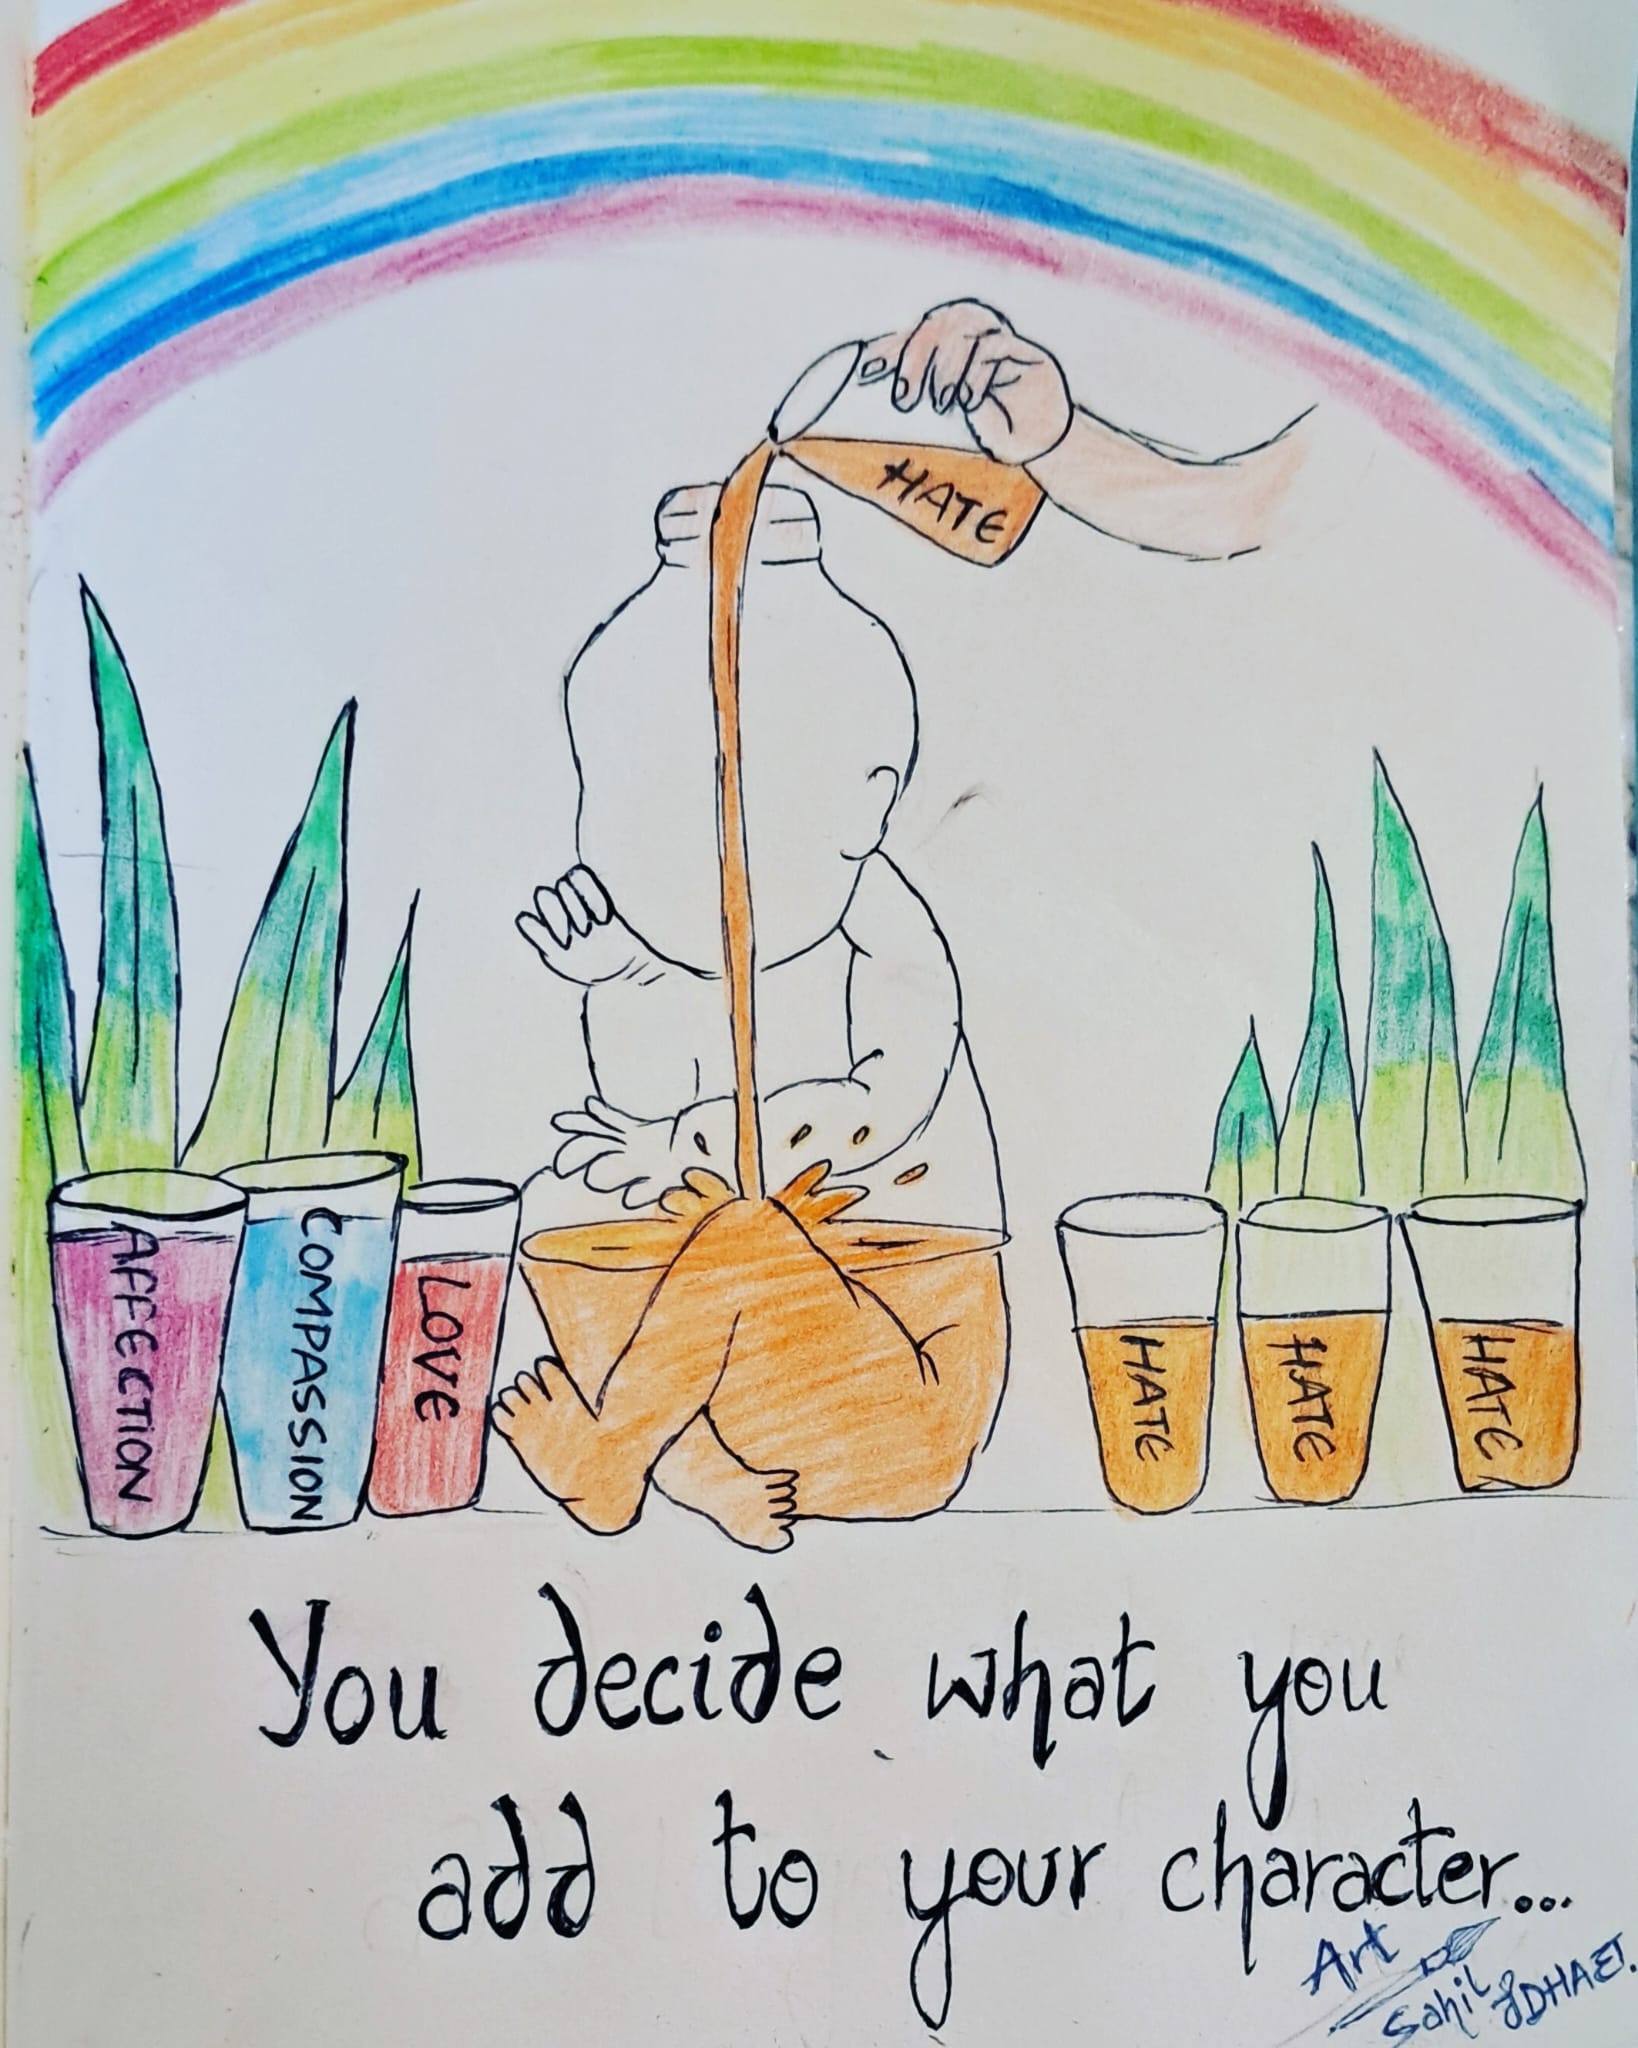 HATE
AFFECTION
COMPASSION
LOVE
HATE
HATE
HATE
You decide what you
add to your character...
Art
Sahil